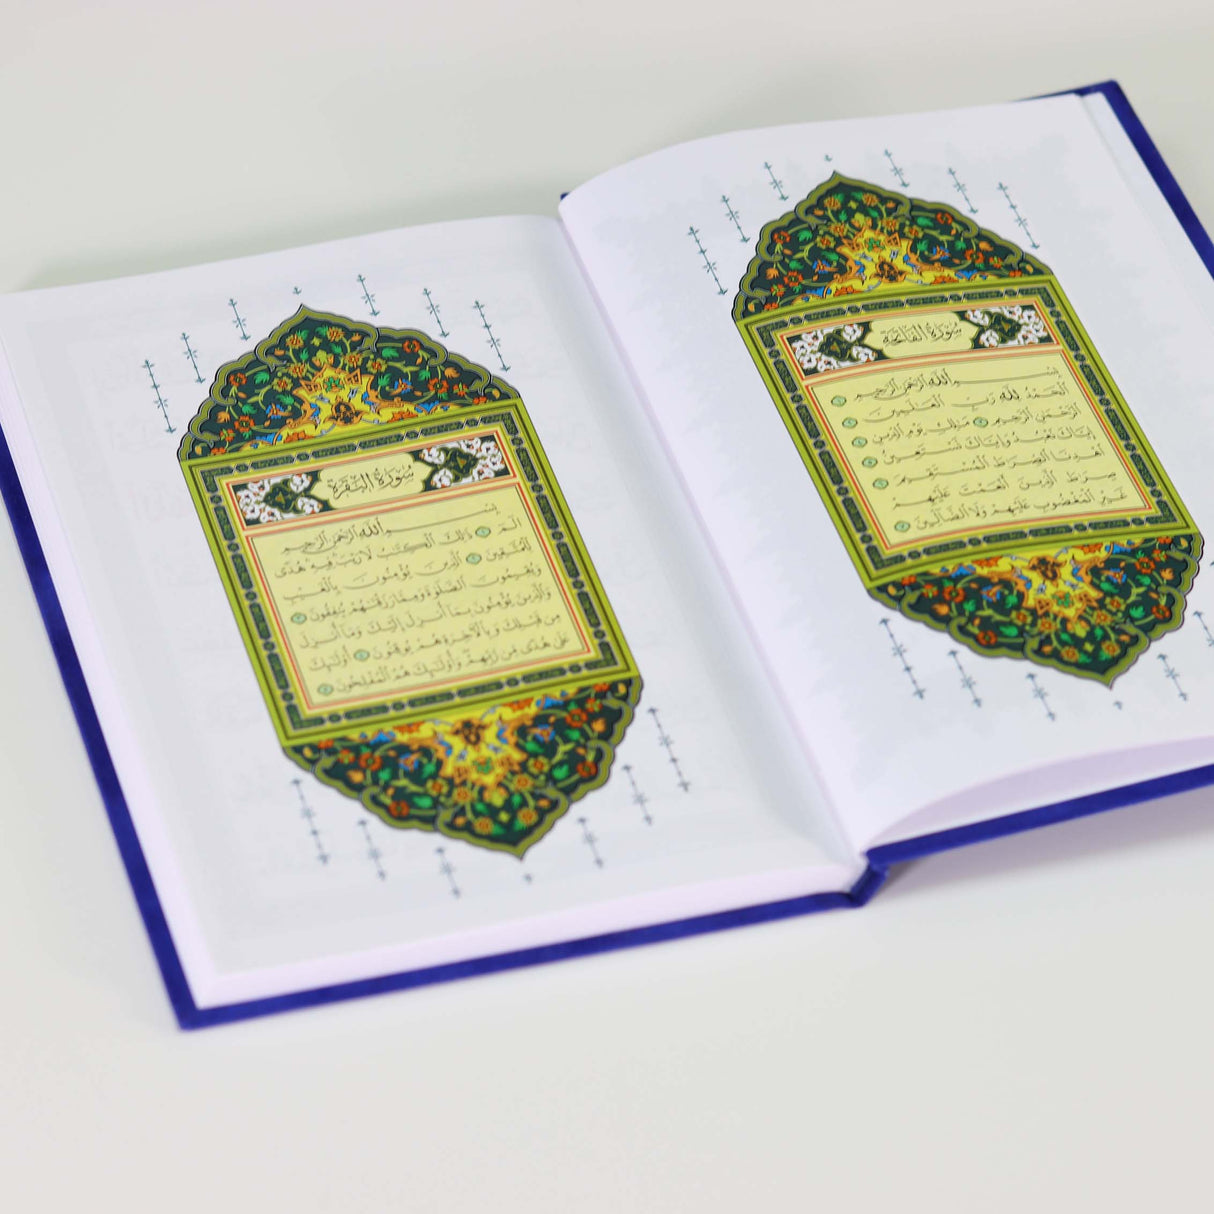 سُورَةُ الفَاتِحَةِ
بِسْمِ اللَّهِ الرَّحْمَٰنِ الرَّحِيمِ ١
الْحَمْدُ لِلَّهِ رَبِّ الْعَالَمِينَ ٢
الرَّحْمَٰنِ الرَّحِيمِ ٣ مَالِكِ يَوْمِ الدِّينِ ٤
إِيَّاكَ نَعْبُدُ وَإِيَّاكَ نَسْتَعِينُ ٥
اهْدِنَا الصِّرَاطَ الْمُسْتَقِيمَ ٦
صِرَاطَ الَّذِينَ أَنْعَمْتَ عَلَيْهِمْ
غَيْرِ الْمَغْضُوبِ عَلَيْهِمْ وَلَا الضَّالِّينَ ٧
سُورَةُ البَقَرَةِ
بِسْمِ اللَّهِ الرَّحْمَٰنِ الرَّحِيمِ
الم ١ ذَٰلِكَ الْكِتَابُ لَا رَيْبَ فِيهِ هُدًى
لِلْمُتَّقِينَ ٢ الَّذِينَ يُؤْمِنُونَ بِالْغَيْبِ
وَيُقِيمُونَ الصَّلَاةَ وَمِمَّا رَزَقْنَاهُمْ يُنْفِقُونَ ٣
وَالَّذِينَ يُؤْمِنُونَ بِمَا أُنْزِلَ إِلَيْكَ وَمَا أُنْزِلَ
مِنْ قَبْلِكَ وَبِالْآخِرَةِ هُمْ يُوقِنُونَ ٤ أُولَٰئِكَ
عَلَىٰ هُدًى مِنْ رَبِّهِمْ وَأُولَٰئِكَ هُمُ الْمُفْلِحُونَ ٥